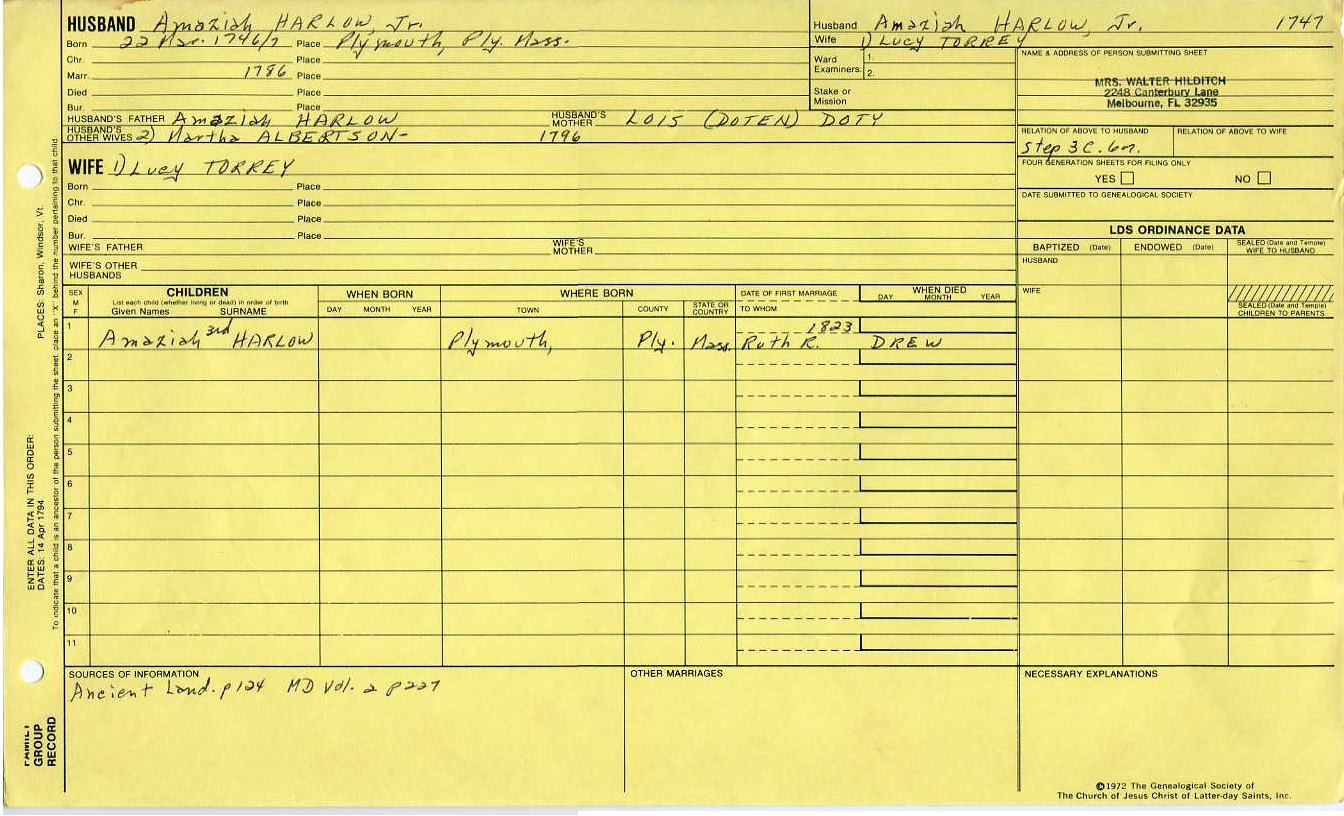 HUSBAND Amaziah HARLOW, Jr.
Born 22 Mar. 1746/7 Place Plymouth, Ply. Mass.
Chr. Place
Marr. 1786 Place
Died Place
Bur. Place
HUSBAND'S FATHER Amaziah HARLOW HUSBAND'S MOTHER LOIS (DOTEN) DOTY
HUSBAND'S OTHER WIVES 2) Martha ALBERTSON- 1796
WIFE 1) Lucy TORREY
Born Place
Chr. Place
Died Place
Bur. Place
WIFE'S FATHER WIFE'S MOTHER
WIFE'S OTHER HUSBANDS
Husband Amaziah HARLOW, Jr. 1747
Wife 1) LUCY TORREY
Ward Examiners: 1.
2.
Stake or Mission
NAME & ADDRESS OF PERSON SUBMITTING SHEET
MRS. WALTER HILDITCH
2248 Canterbury Lane
Melbourne, FL 32935
RELATION OF ABOVE TO HUSBAND RELATION OF ABOVE TO WIFE
Step 3C. 6r.
FOUR GENERATION SHEETS FOR FILING ONLY
YES NO
DATE SUBMITTED TO GENEALOGICAL SOCIETY
LDS ORDINANCE DATA
BAPTIZED (Date) ENDOWED (Date) SEALED (Date and Temple) WIFE TO HUSBAND
HUSBAND
WIFE
SEALED (Date and Temple) CHILDREN TO PARENTS
SEX M F
CHILDREN
List each child (whether living or dead) in order of birth
Given Names SURNAME
WHEN BORN
DAY MONTH YEAR
WHERE BORN
TOWN COUNTY STATE OR COUNTRY
DATE OF FIRST MARRIAGE
TO WHOM
WHEN DIED
DAY MONTH YEAR
1 Amaziah 3rd HARLOW Plymouth, Ply. Mass. 1823 Ruth R. DREW
2
3
4
5
6
7
8
9
10
11
SOURCES OF INFORMATION
Ancient Land. p 124 MD Vol. 2 p 227
OTHER MARRIAGES
NECESSARY EXPLANATIONS
©1972 The Genealogical Society of
The Church of Jesus Christ of Latter-day Saints, Inc.
PLACES: Sharon, Windsor, Vt.
ENTER ALL DATA IN THIS ORDER:
DATES: 14 Apr 1794
To indicate that a child is an ancestor of the person submitting the sheet, place an "X" behind the number pertaining to that child
FAMILY GROUP RECORD